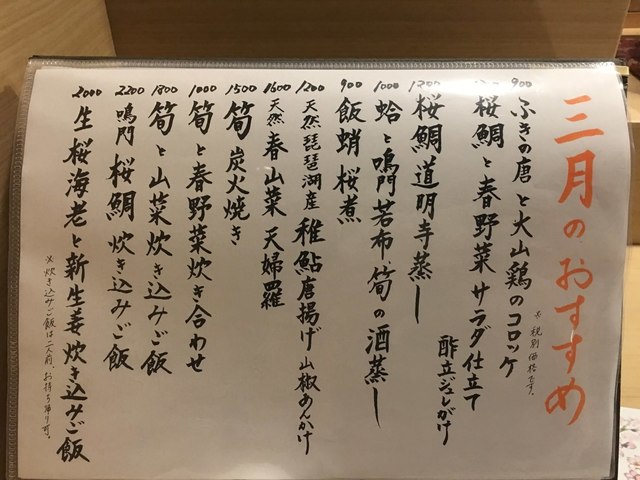 三月のおすすめ
※税別価格です。
900 ふきの唐と大山鶏のコロッケ
桜鯛と春野菜サラダ仕立て
酢立ジュレがけ
1200 桜鯛道明寺蒸し
1000 蛤と鳴門若布・筍の酒蒸し
900 飯蛸桜煮
1200 天然琵琶湖産 稚鮎唐揚げ 山椒あんかけ
1600 天然春山菜 天婦羅
1500 筍炭火焼き
1000 筍と春野菜炊き合わせ
1800 筍と山菜炊き込みご飯
2200 鳴門桜鯛炊き込みご飯
2000 生桜海老と新生姜炊き込みご飯
※炊き込みご飯は二人前、お持ち帰り可。